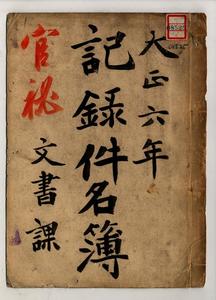 大正六年
記録件名簿
官秘
文書課